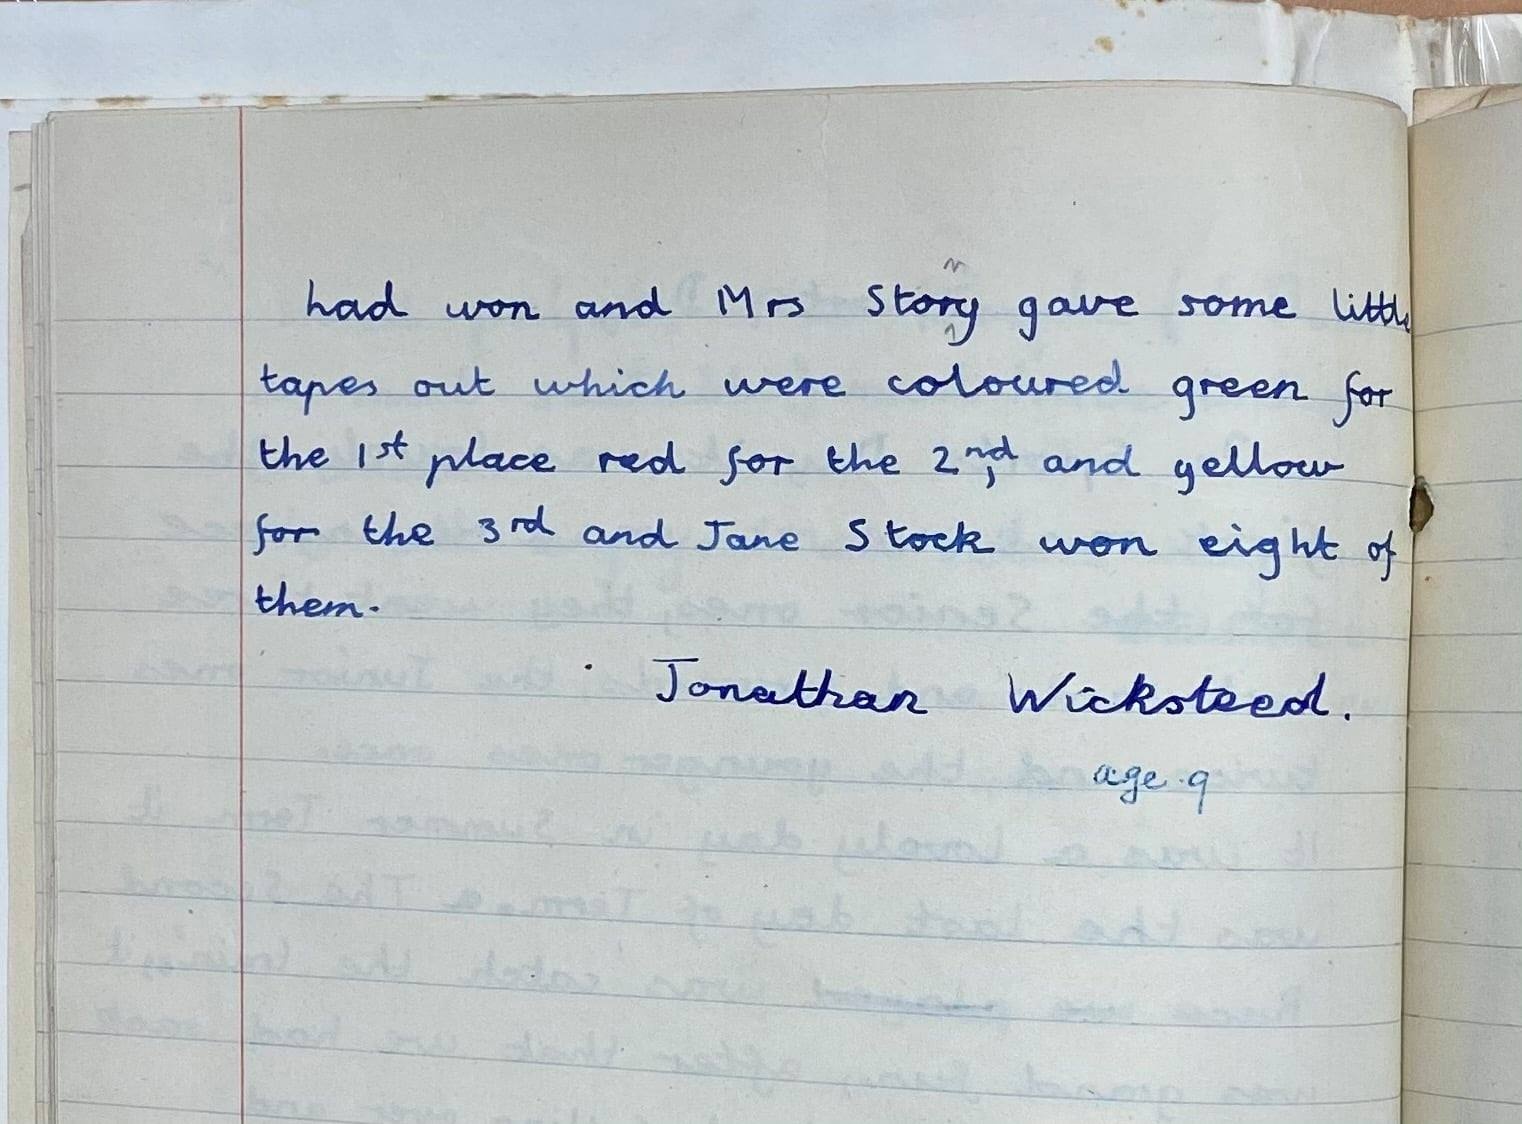 had won and Mrs Story gave some little
tapes out which were coloured green for
the 1st place red for the 2nd, and yellow
for the 3rd and Jane Stock won eight of
them.
Jonathan Wicksteed.
age 9